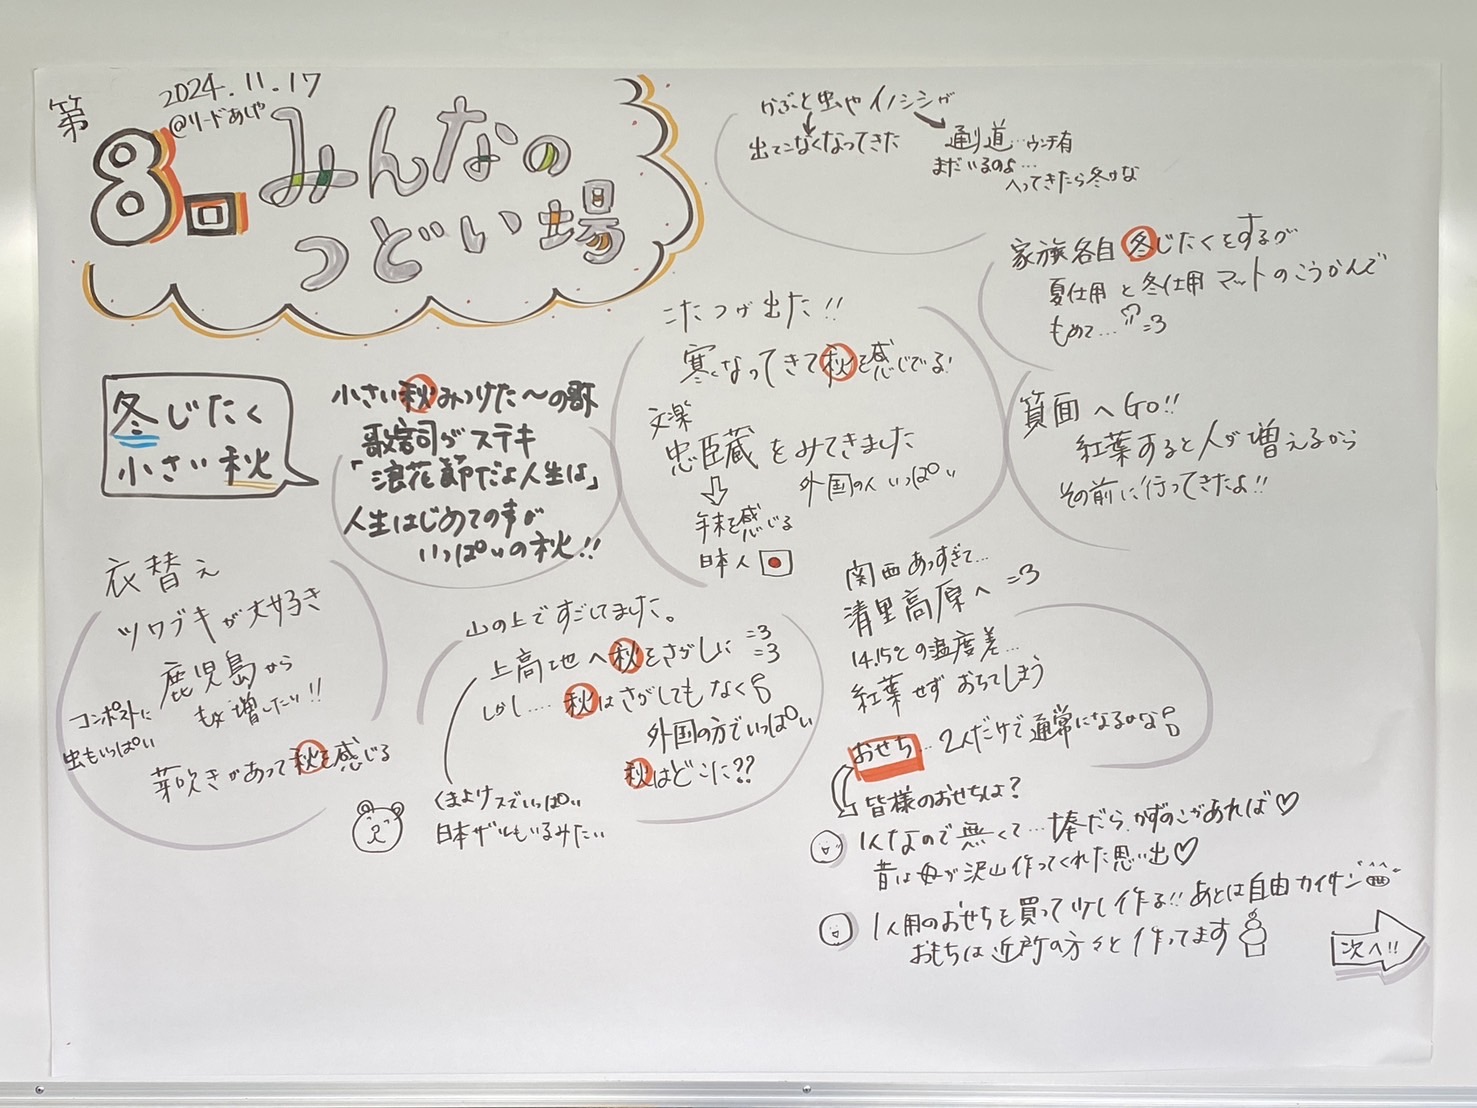 第8回
2024.11.17
@リードあしや
みんなの
つどい場
冬じたく
小さい秋
小さい秋みつけた〜の歌
歌詞がステキ
「浪花節だよ人生は」
人生はじめての声が
いっぱいの秋!!
かぶと虫やイノシシが
出てこなくなってきた
通り道…ウンチ有
まだいるのよ…
へってきたら冬かな
家族各自冬じたくをするが
夏仕用と冬仕用マットのこうかんで
もめて…
こたつが出た!!
寒くなってきて秋を感じてる!
文楽
忠臣蔵をみてきました
外国の人いっぱい
年末を感じる
日本人
箕面へGO!!
紅葉すると人が増えるから
その前に行ってきたよ!!
衣替え
ツワブキが大好き
鹿児島から
もっと増したい!!
コンポストに
虫もいっぱい
芽吹きがあって秋を感じる
山の上ですごしてました。
上高地へ秋をさがしに
しかし....秋はさがしてもなく
外国の方でいっぱい
秋はどこに??
くまよけスズいっぱい
日本ザルもいるみたい
関西あつすぎて…
清里高原へ
14,15℃の温度差…
紅葉せずおちてしまう
おせち…2人だけで通常になるかな
皆様のおせちは?
1人なので無くて…棒だら、かずのこがあれば♡
昔は母が沢山作ってくれた思い出♡
1人用のおせちを買って少し作る!!あとは自由カイサン
おもちは近所の方々と作ってます
次へ!!